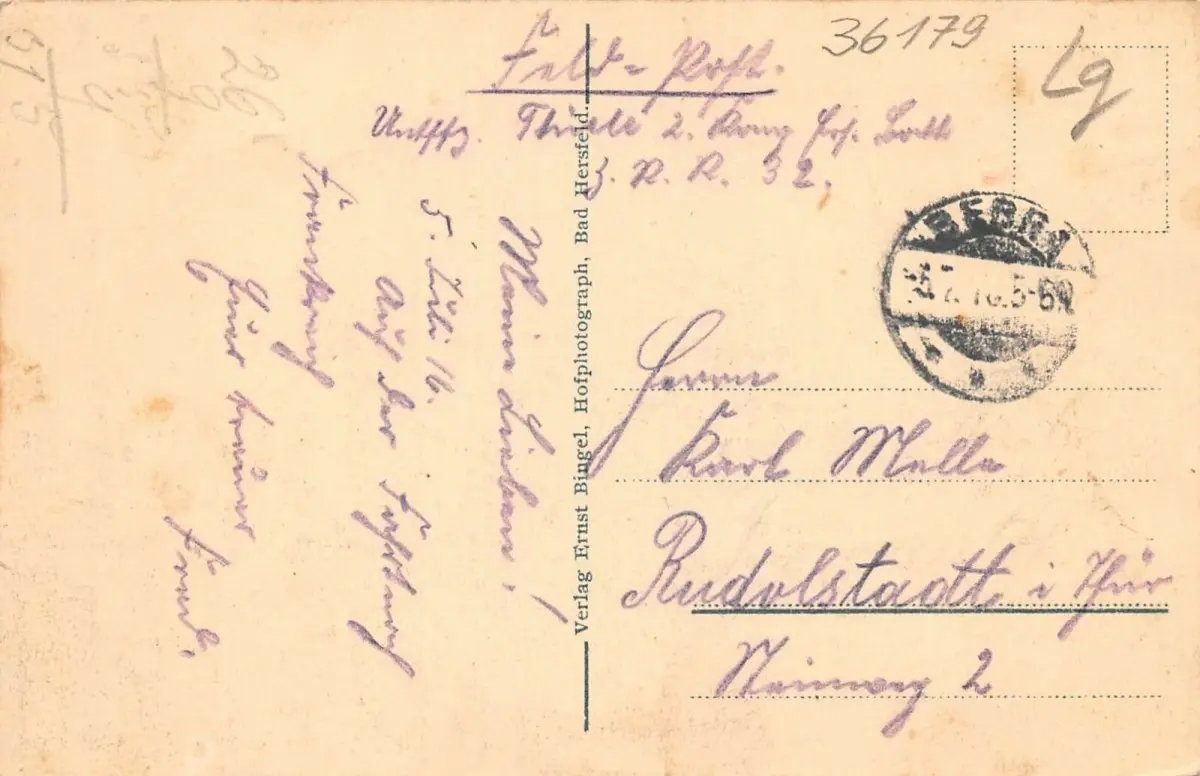 36179
Lg
Feld-Post.
Untffz. Thiele 2. Komp Ers. Batl
J. R. R. 32.
BEBRA
5.7.16.5-6N
Meine Lieben!
5. Juli 16.
Auf der Fahrt nach
Frankreich
Euer treuer
Fred.
Verlag Ernst Bingel, Hofphotograph, Bad Hersfeld.
Herrn
Karl Melle
Rudolstadt i Thür
Weinweg 2
26
9
515